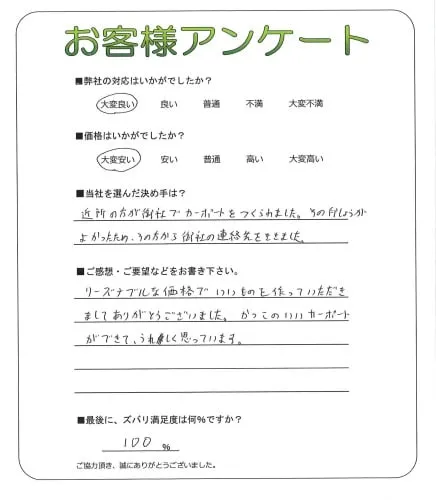 お客様アンケート
■弊社の対応はいかがでしたか?
大変良い 良い 普通 不満 大変不満
■価格はいかがでしたか?
大変安い 安い 普通 高い 大変高い
■当社を選んだ決め手は?
近所の方が御社でカーポートをつくられました。その
よかったため、その方から御社の連絡先をききました。
■ご感想・ご要望などをお書き下さい。
リーズナブルな価格でいいものを作っていただき
ましてありがとうございました。かっこのいいカーポート
ができて、うれしく思っています。
■最後に、ズバリ満足度は何%ですか?
100 %
ご協力頂き、誠にありがとうございました。